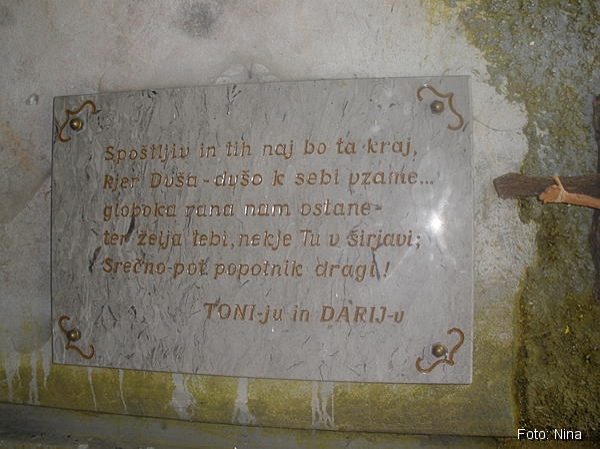 Spoštljiv in tih naj bo ta kraj,
kjer Duša - dušo k sebi vzame...
globoka rana nam ostane-
ter želja tebi, nekje Tu v širjavi;
Srečno-pot popotnik dragi!
TONI-ju in DARIJ-u
Foto: Nina